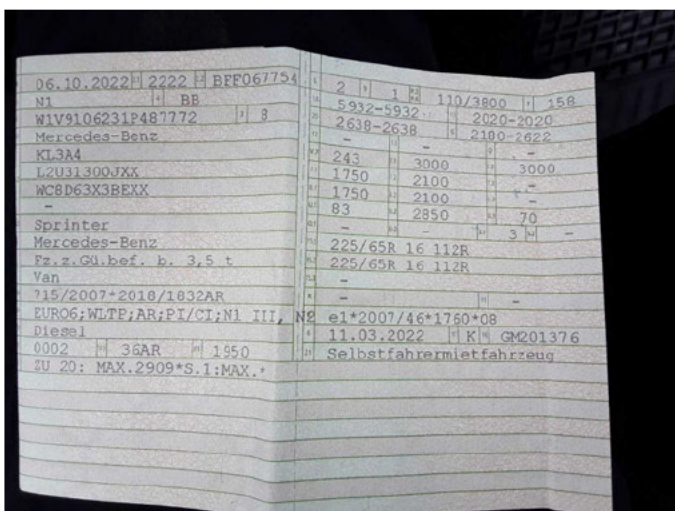 06.10.2022 2222 BFF067754
N1 BB
W1V9106231P487772 3 8
Mercedes-Benz
KL3A4
L2U31300JXX
WC8D63X3BEXX
-
Sprinter
Mercedes-Benz
Fz.z.Gü.bef. b. 3,5 t
Van
715/2007*2018/1832AR
EURO6;WLTP;AR;PI/CI;N1 III, N2
Diesel
0002 36AR 1950
ZU 20: MAX.2909*S.1:MAX.*
2 1 110/3800 158
5932-5932 2020-2020
2638-2638 2180-2622
- - -
243 3000 3000
1750 2100 -
1750 2100 -
83 2850 70
- - 3 -
225/65R 16 112R
225/65R 16 112R
-
- -
e1*2007/46*1760*08
11.03.2022 K GM201376
21 Selbstfahrermietfahrzeug